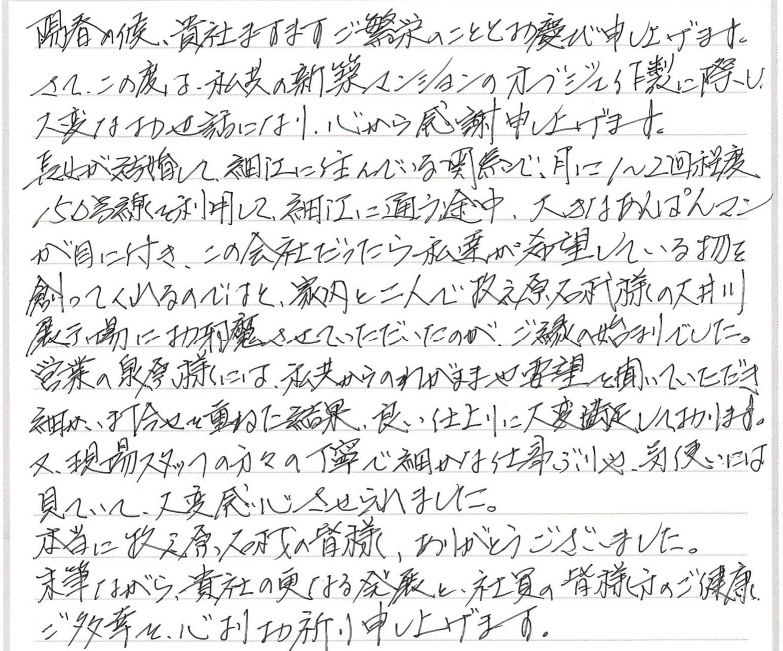 陽春の候、貴社ますますご繁栄のこととお慶び申し上げます。
さて、この度は、私共の新築マンションのオブジェ作製に際し、
大変なお世話になり、心から感謝申し上げます。
長女が結婚して、細江に住んでいる関係で、月に1〜2回程度、
150号線を利用して、細江に通う途中、大きなあんぱんマン
が目に付き、この会社だったら私達が希望している物を
創ってくれるのではと、家内と二人で牧之原石材様の大井川
展示場にお邪魔させていただいたのが、ご縁の始まりでした。
営業の泉原様には、私共からのわがままや要望を聞いていただき
細かい打合せを重ねた結果、良い仕上りに大変満足しております。
又、現場スタッフの方々の丁寧で細かな仕事ぶりや、気使いには
見ていて、大変感心させられました。
本当に牧之原石材の皆様、ありがとうございました。
末筆ながら、貴社の更なる発展と、社員の皆様方のご健康、
ご多幸を、心よりお祈り申し上げます。